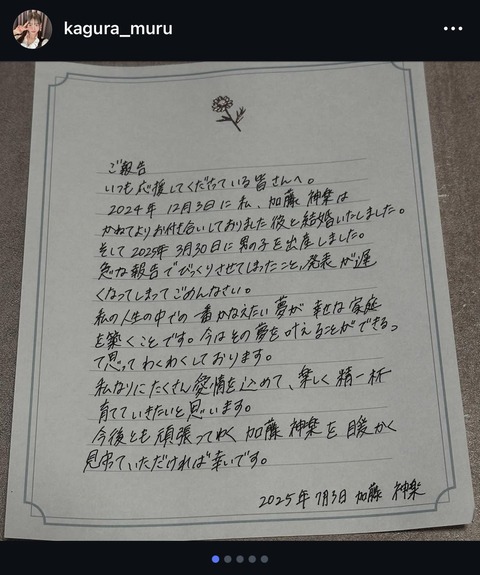 kagura_muru
ご報告
いつも応援してくださっている皆さんへ。
2024年 12月3日に私、加藤 神楽は
かねてよりお付き合いしておりました彼と結婚いたしました。
そして2025年 3月30日に男の子を出産しました。
急な報告でびっくりさせてしまったこと、発表が遅
くなってしまってごめんなさい。
私の人生の中での一番かなえたい夢が 幸せな家庭
を築くことです。今はその夢を叶えることができるっ
て思ってわくわくしております。
私なりにたくさん愛情を込めて、楽しく精一杯
育てていきたいと思います。
今後とも頑張ってゆく加藤 神楽を暖かく
見守っていただければ幸いです。
2025年7月3日 加藤 神楽